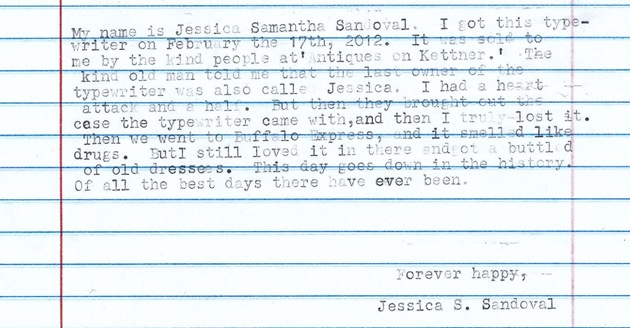 My name is Jessica Samantha Sandoval. I got this type-
writer on February the 17th, 2012. It was sold to
me by the kind people at'Antiques on Kettner.' The
kind old man told me that the last owner of the
typewriter was also calle Jessica. I had a heart
attack and a half. But then they brought out the
case the typewriter came with,and then I truly lost it.
Then we went to Buffalo Express, and it smelled like
drugs. ButI still loved it in there andgot a buttl d
of old dressers. This day goes down in the history.
Of all the best days there have ever been.
Forever happy,
Jessica S. Sandoval